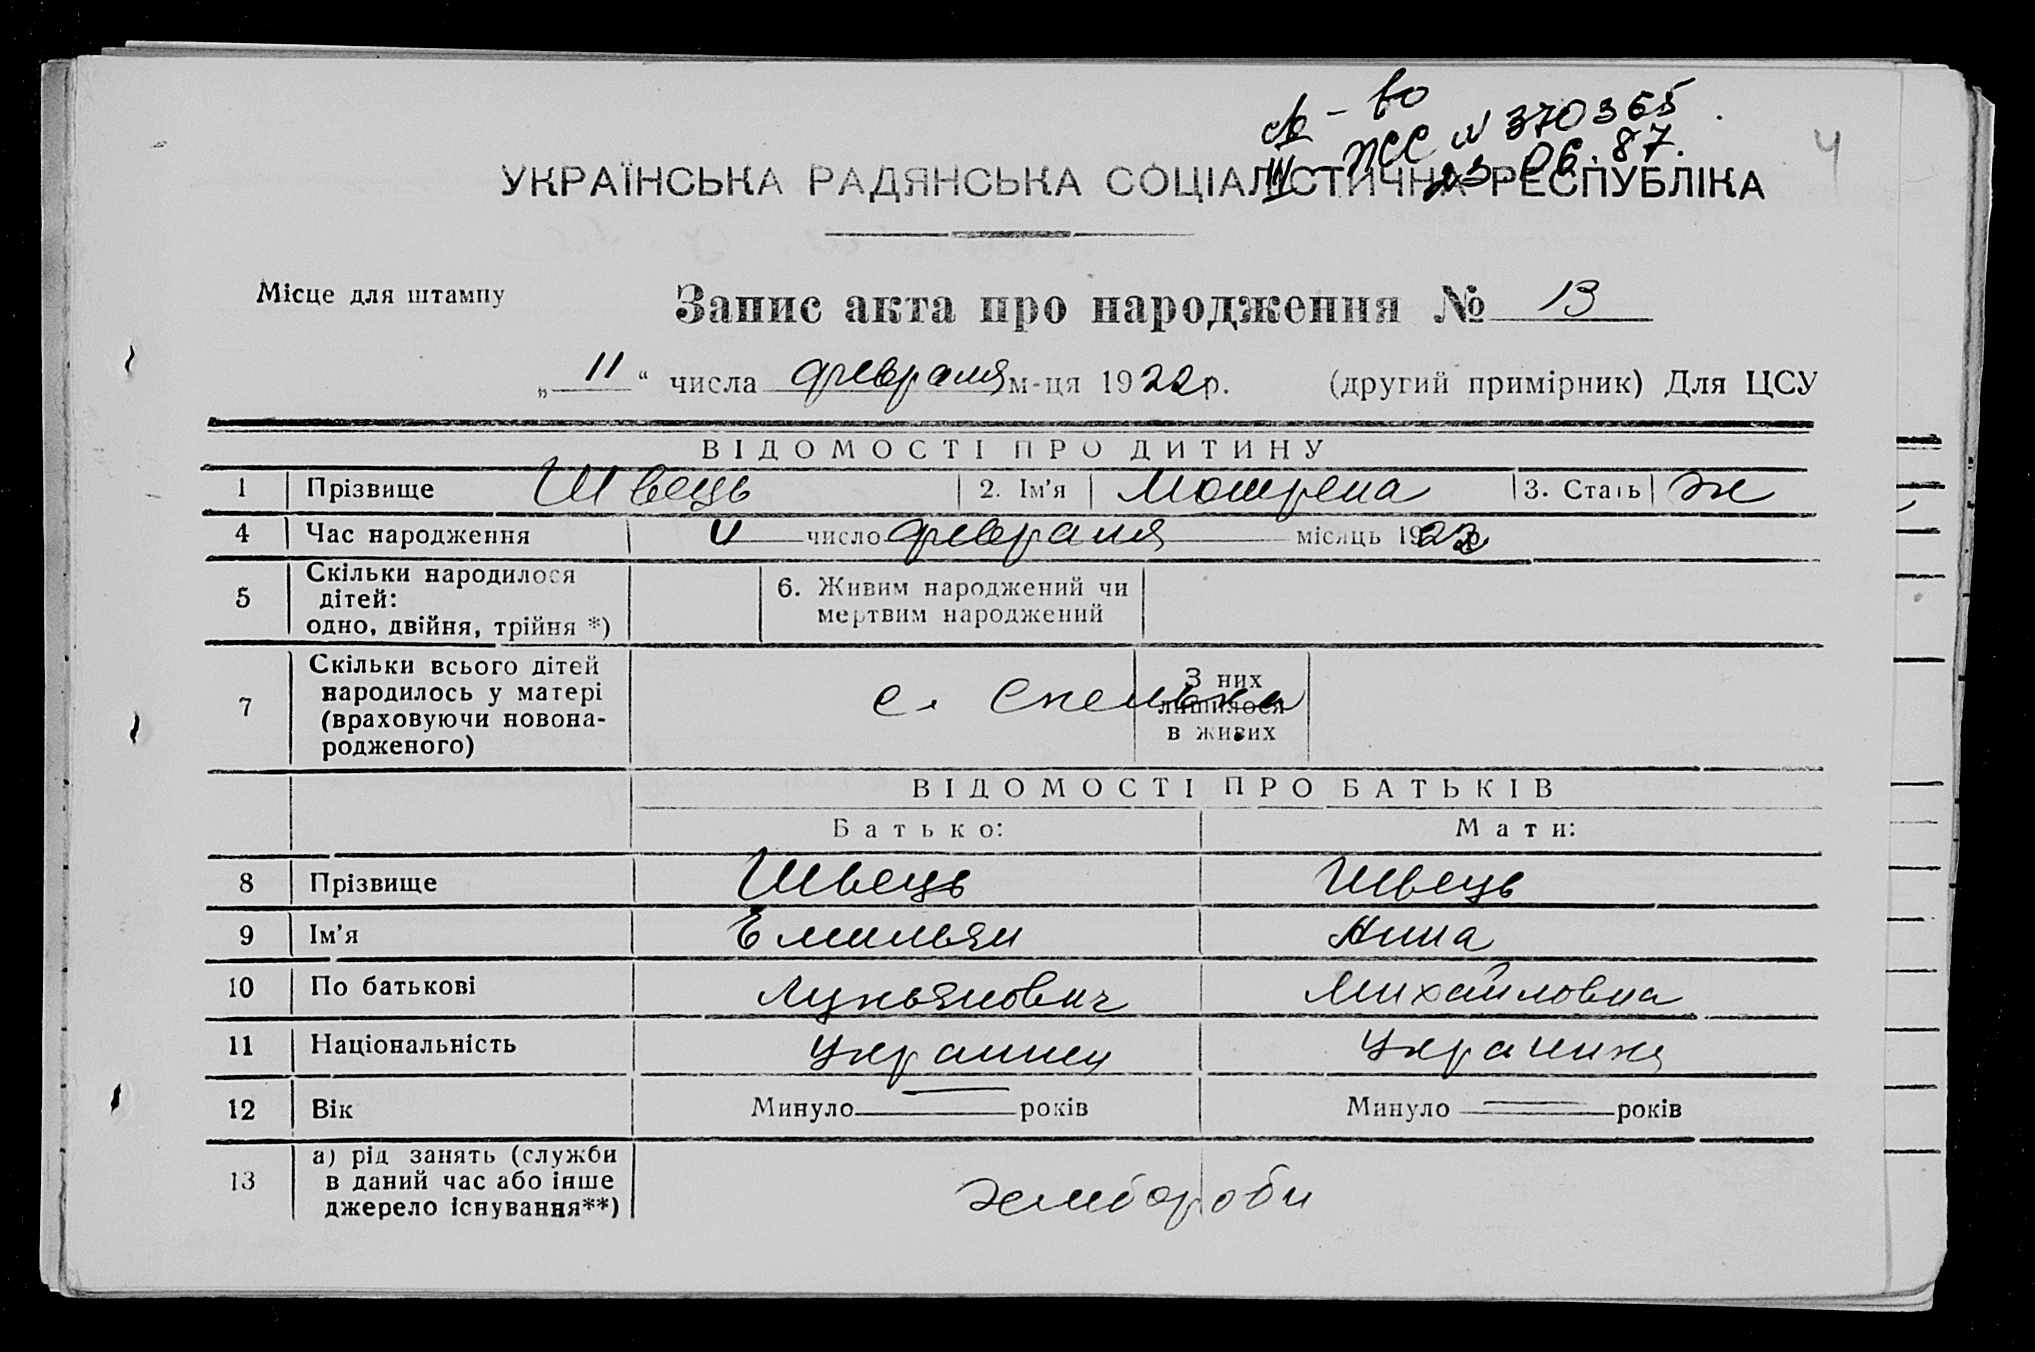 св-во
III ЖСС № 370365
23.06.87.
4
УКРАЇНСЬКА РАДЯНСЬКА СОЦІАЛІСТИЧНА РЕСПУБЛІКА
Місце для штампу
Запис акта про народження № 13
„11“ числа февраля м-ця 1922 р. (другий примірник) Для ЦСУ
ВІДОМОСТІ ПРО ДИТИНУ
1 Прізвище Швець 2. Ім'я Мотрена 3. Стать ж
4 Час народження число февраля місяць 1922
5 Скільки народилося дітей: одно, двійня, трійня *) 6. Живим народжений чи мертвим народжений
7 Скільки всього дітей народилось у матері (враховуючи новонародженого) с. Скелька З них лишилося в живих
ВІДОМОСТІ ПРО БАТЬКІВ
Батько: Мати:
8 Прізвище Швець Швець
9 Ім'я Емильян Анна
10 По батькові Лукьянович Михайловна
11 Національність Украинец Украинка
12 Вік Минуло — років Минуло — років
13 а) рід занять (служби в даний час або інше джерело існування**) хлибороби